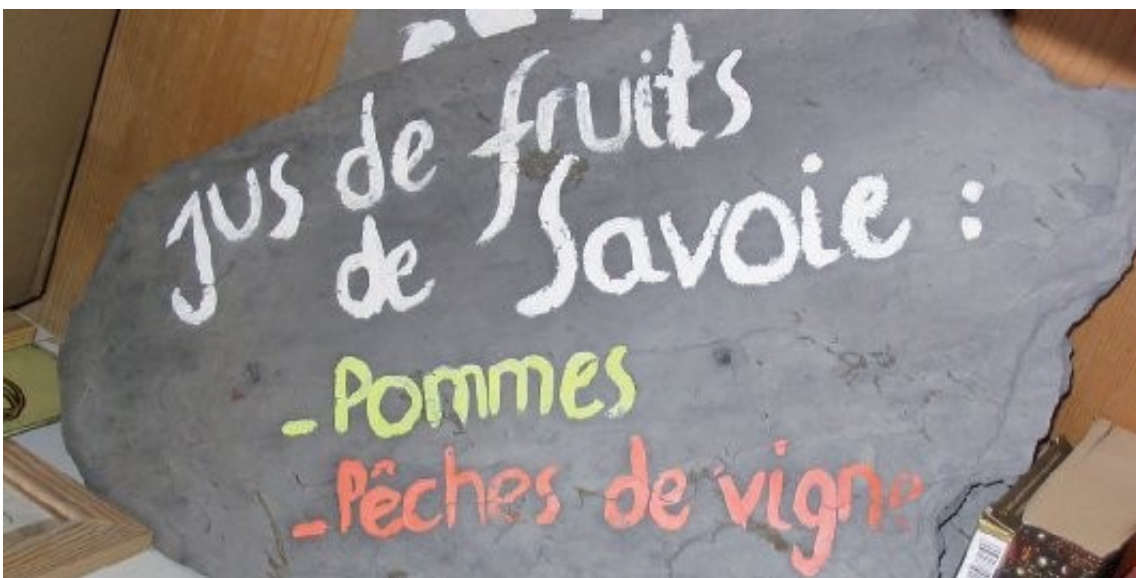 jus de fruits
de Savoie :
- Pommes
- Pêches de vigne